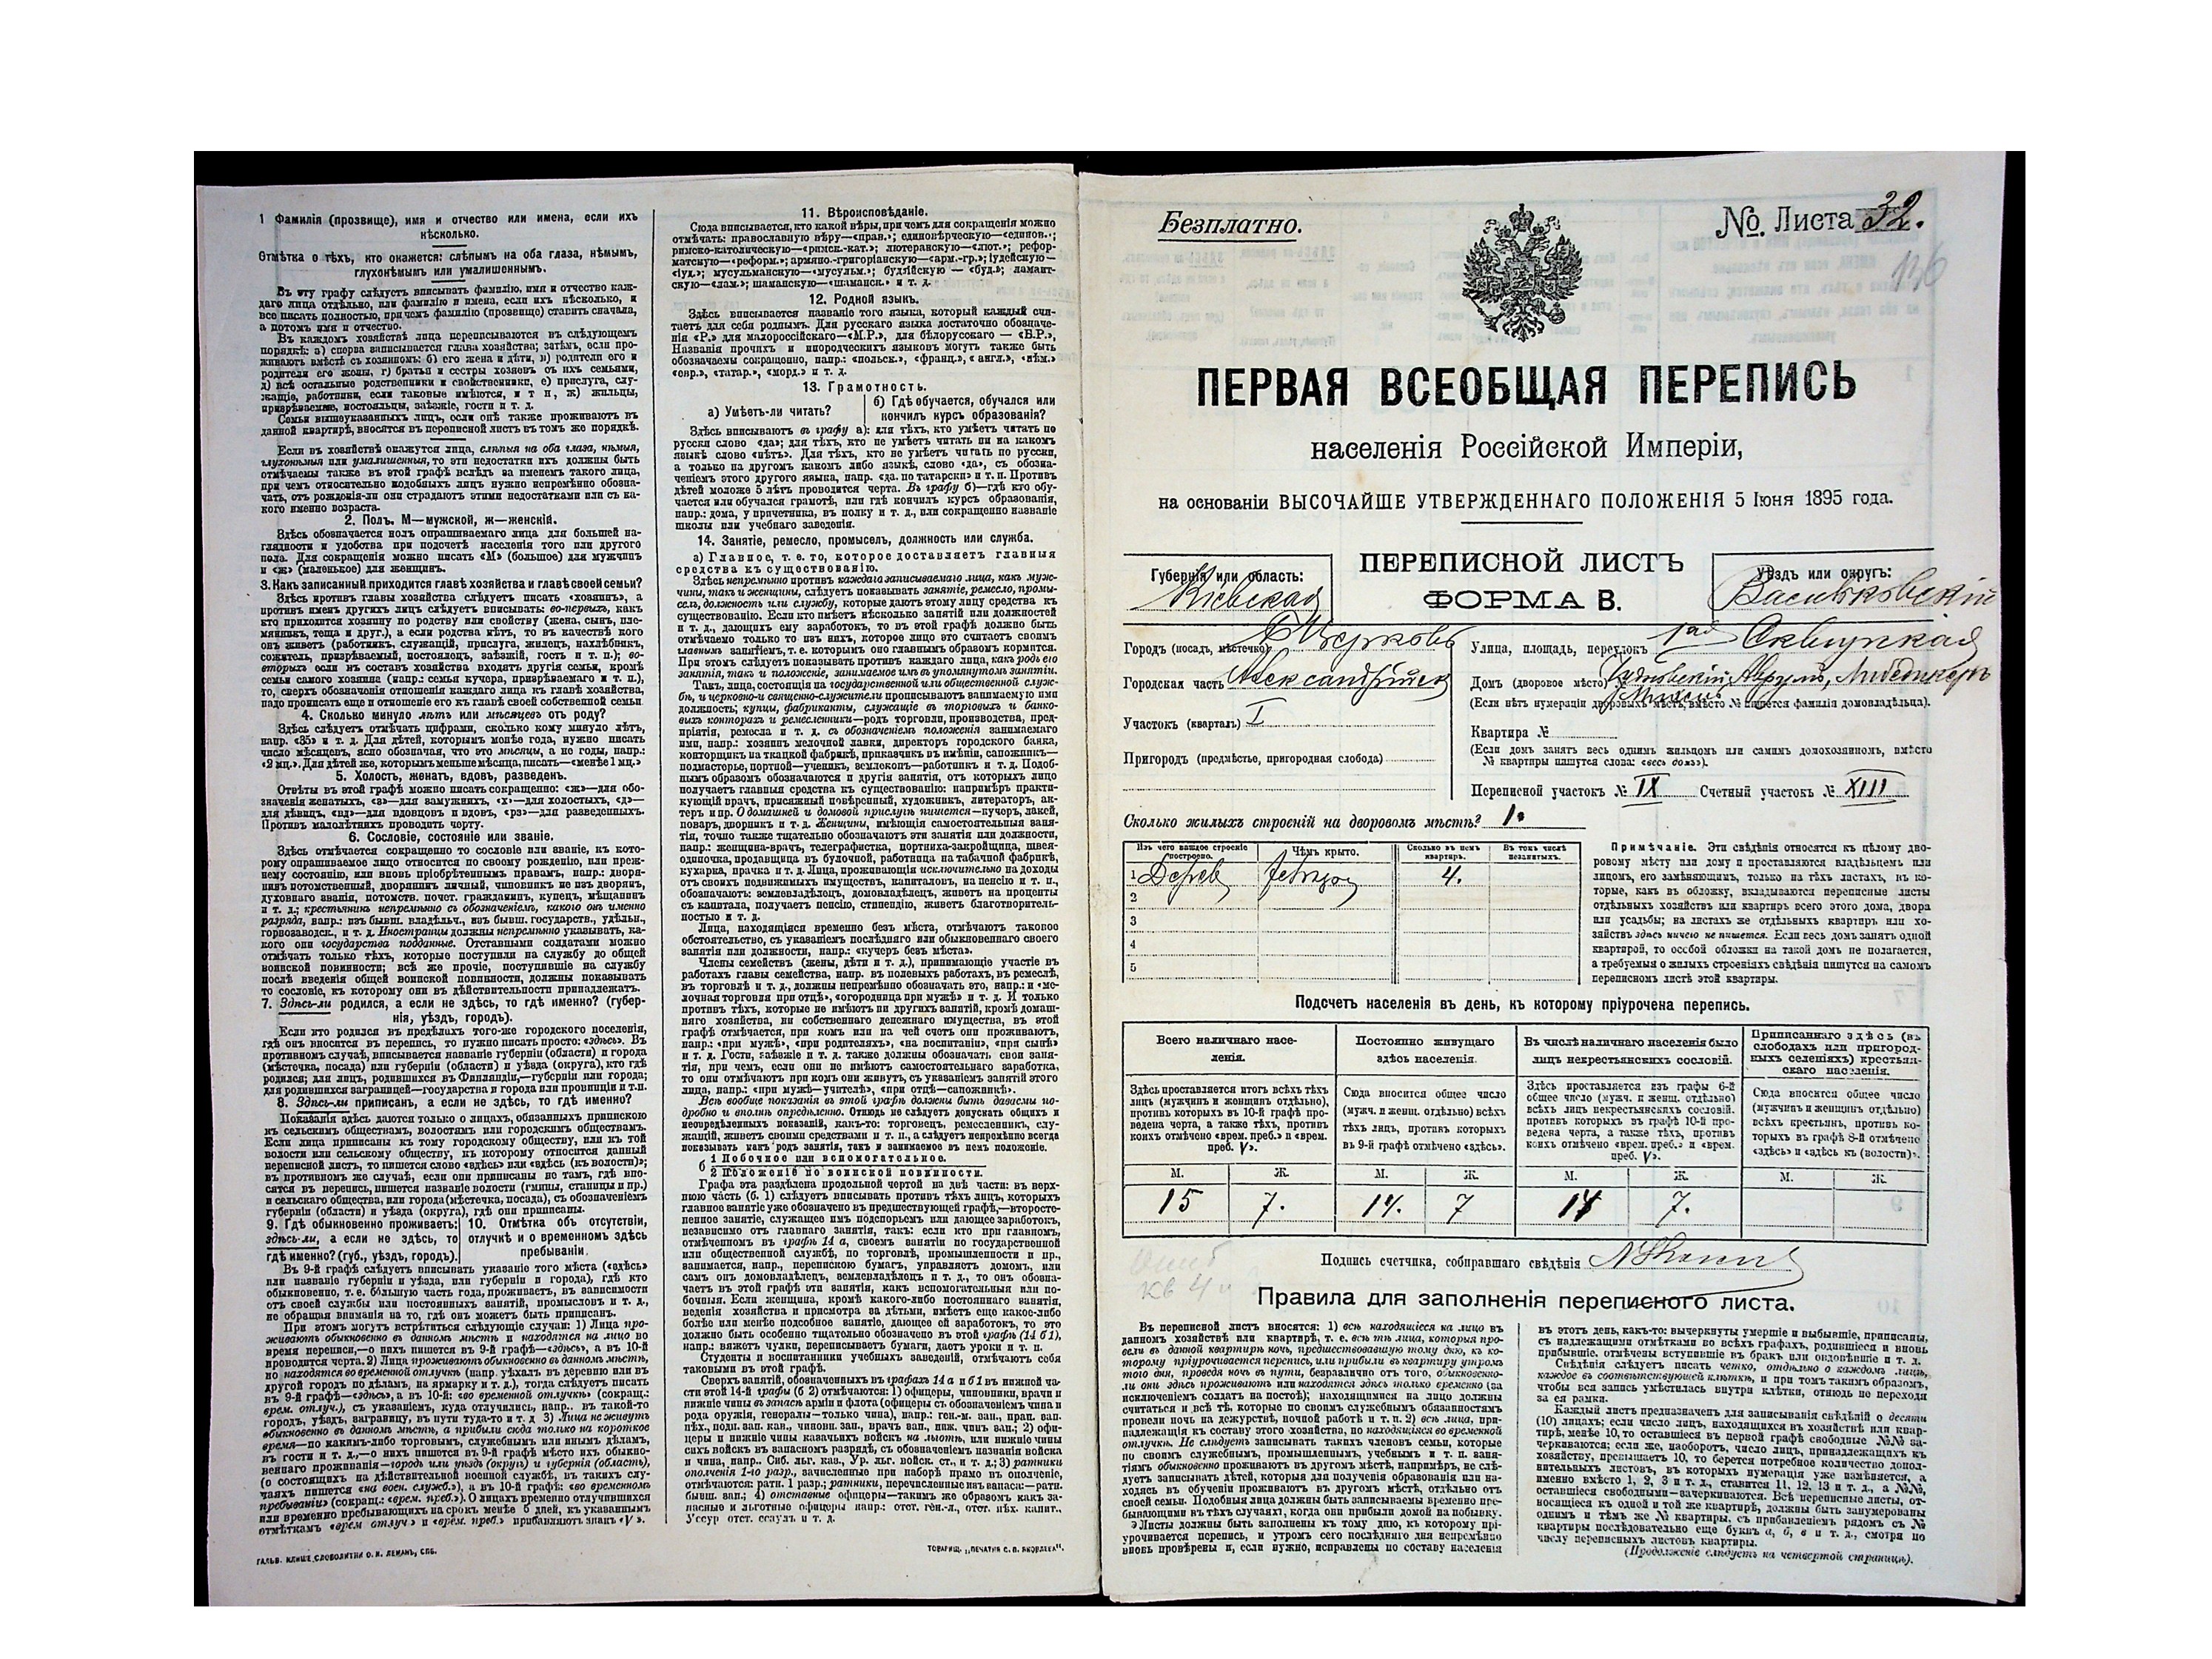 1 Фамилія (прозвище), имя и отчество или имена, если ихъ
нѣсколько.
Отмѣтка о тѣхъ, кто окажется: слѣпымъ на оба глаза, нѣмымъ,
глухонѣмымъ или умалишеннымъ.
Въ эту графу слѣдуетъ вписывать фамилію, имя и отчество каж-
даго лица отдѣльно, или фамилію и имена, если ихъ нѣсколько, и
все писать полностью, при чемъ фамилію (прозвище) ставить сначала,
а потомъ имя и отчество.
Въ каждомъ хозяйствѣ лица переписываются въ слѣдующемъ
порядкѣ: а) сперва записывается глава хозяйства; затѣмъ, если про-
живаютъ вмѣстѣ съ хозяиномъ: б) его жена и дѣти, в) родители его и
родители его жены, г) братья и сестры хозяевъ съ ихъ семьями,
д) всѣ остальные родственники и свойственники, е) прислуга, слу-
жащіе, работники, если таковые имѣются, и т п, ж) жильцы,
призрѣваемые, постояльцы, заѣзжіе, гости и т. д.
Семьи вышеуказанныхъ лицъ, если онѣ также проживаютъ въ
данной квартирѣ, вносятся въ переписной листъ въ томъ же порядкѣ.
Если въ хозяйствѣ окажутся лица, слѣпыя на оба глаза, нѣмыя,
глухонѣмыя или умалишенныя, то эти недостатки ихъ должны быть
отмѣчаемы также въ этой графѣ вслѣдъ за именемъ такого лица,
при чемъ относительно подобныхъ лицъ нужно непремѣнно обозна-
чать, отъ рожденія-ли они страдаютъ этими недостатками или съ ка-
кого именно возраста.
2. Полъ. М—мужской, ж—женскій.
Здѣсь обозначается полъ опрашиваемаго лица для большей на-
глядности и удобства при подсчетѣ населенія того или другого
пола. Для сокращенія можно писать «М» (большое) для мужчинъ
и «ж» (маленькое) для женщинъ.
3. Какъ записанный приходится главѣ хозяйства и главѣ своей семьи?
Здѣсь противъ главы хозяйства слѣдуетъ писать «хозяинъ», а
противъ именъ другихъ лицъ слѣдуетъ вписывать: во-первыхъ, какъ
кто приходится хозяину по родству или свойству (жена, сынъ, пле-
мянникъ, теща и друг.), а если родства нѣтъ, то въ качествѣ кого
онъ живетъ (работникъ, служащій, прислуга, жилецъ, нахлѣбникъ,
сожитель, призрѣваемый, постоялецъ, заѣзжій, гость и т. п.); во-
вторыхъ если въ составъ хозяйства входятъ другія семьи, кромѣ
семьи самого хозяина (напр.: семья кучера, призрѣваемаго и т. п.),
то, сверхъ обозначенія отношенія каждаго лица къ главѣ хозяйства,
надо прописать еще и отношеніе его къ главѣ своей собственной семьи.
4. Сколько минуло лѣтъ или мѣсяцевъ отъ роду?
Здѣсь слѣдуетъ отмѣчать цифрами, сколько кому минуло лѣтъ,
напр. «35» и т. д. Для дѣтей, которымъ менѣе года, нужно писать
число мѣсяцевъ, ясно обозначая, что это мѣсяцы, а не годы, напр.:
«2 мц.». Для дѣтей же, которымъ меньше мѣсяца, писать—«менѣе 1 мц.»
5. Холостъ, женатъ, вдовъ, разведенъ.
Отвѣты въ этой графѣ можно писать сокращенно: «ж»—для обо-
значенія женатыхъ, «з»—для замужнихъ, «х»—для холостыхъ, «д»—
для дѣвицъ, «вд»—для вдовцовъ и вдовъ, «рз»—для разведенныхъ.
Противъ малолѣтнихъ проводить черту.
6. Сословіе, состояніе или званіе.
Здѣсь отмѣчается сокращенно то сословіе или званіе, къ кото-
рому опрашиваемое лицо относится по своему рожденію, или преж-
нему состоянію, или вновь пріобрѣтеннымъ правамъ, напр: дворя-
нинъ потомственный, дворянинъ личный, чиновникъ не изъ дворянъ,
духовнаго званія, потомств. почет. гражданинъ, купецъ, мѣщанинъ
и т. д.; крестьянинъ непремѣнно съ обозначеніемъ, какого онъ именно
разряда, напр.: изъ бывш. владѣльч., изъ бывш. государств., удѣльн.,
горнозаводск., и т. д. Иностранцы должны непремѣнно указывать, ка-
кого они государства подданные. Отставными солдатами можно
отмѣчать только тѣхъ, которые поступили на службу до общей
воинской повинности; всѣ же прочіе, поступившіе на службу
послѣ введенія общей воинской повинности, должны показывать
то сословіе, къ которому они въ дѣйствительности принадлежатъ.
7. Здѣсь-ли родился, а если не здѣсь, то гдѣ именно? (губер-
нія, уѣздъ, городъ).
Если кто родился въ предѣлахъ того-же городского поселенія,
гдѣ онъ вносится въ перепись, то нужно писать просто: «здѣсь». Въ
противномъ случаѣ, вписывается названіе губерніи (области) и города
(мѣстечка, посада) или губерніи (области) и уѣзда (округа), кто гдѣ
родился; для лицъ, родившихся въ Финляндіи,—губерніи или города;
для родившихся заграницей—государства и города или провинціи и т.п.
8. Здѣсь-ли приписанъ, а если не здѣсь, то гдѣ именно?
Показанія здѣсь даются только о лицахъ, обязанныхъ припискою
къ сельскимъ обществамъ, волостямъ или городскимъ обществамъ.
Если лица приписаны къ тому городскому обществу, или къ той
волости или сельскому обществу, къ которому относится данный
переписной листъ, то пишется слово «здѣсь» или «здѣсь (къ волости)»;
въ противномъ же случаѣ, если они приписаны не тамъ, гдѣ вно-
сятся въ перепись, пишется названіе волости (гмины, станицы и пр.)
и сельскаго общества, или города (мѣстечка, посада), съ обозначеніемъ
губерніи (области) и уѣзда (округа), гдѣ они приписаны.
9. Гдѣ обыкновенно проживаетъ: здѣсь-ли, а если не здѣсь, то гдѣ именно? (губ., уѣздъ, городъ).
10. Отмѣтка объ отсутствіи, отлучкѣ и о временномъ здѣсь пребываніи.
Въ 9-й графѣ слѣдуетъ вписывать указаніе того мѣста («здѣсь»
или названіе губерніи и уѣзда, или губерніи и города), гдѣ кто
обыкновенно, т. е. бо́льшую часть года, проживаетъ, въ зависимости
отъ своей службы или постоянныхъ занятій, промысловъ и т. д.,
не обращая вниманія на то, гдѣ онъ можетъ быть приписанъ.
При этомъ могутъ встрѣтиться слѣдующіе случаи: 1) Лица про-
живаютъ обыкновенно въ данномъ мѣстѣ и находятся на лицо во
время переписи,—о нихъ пишется въ 9-й графѣ—«здѣсь», а въ 10-й
проводится черта. 2) Лица проживаютъ обыкновенно въ данномъ мѣстѣ,
но находятся во временной отлучкѣ (напр. уѣхалъ въ деревню или въ
другой городъ по дѣламъ, на ярмарку и т. д.), тогда слѣдуетъ писать
въ 9-й графѣ—«здѣсь», а въ 10-й: «во временной отлучкѣ» (сокращ.:
врем. отлуч.), съ указаніемъ, куда отлучились, напр.. въ такой-то
городъ, уѣздъ, заграницу, въ пути туда-то и т. д 3) Лица не живутъ
обыкновенно въ данномъ мѣстѣ, а прибыли сюда только на короткое
время—по какимъ-либо торговымъ, служебнымъ или инымъ дѣламъ,
въ гости и т. д.,—о нихъ пишется въ 9-й графѣ мѣсто ихъ обыкно-
веннаго проживанія—городъ или уѣздъ (округъ) и губернія (область),
(о состоящихъ на дѣйствительной военной службѣ, въ такихъ слу-
чаяхъ пишется «на воен. служб.»), а въ 10-й графѣ: «во временномъ
пребываніи» (сокращ.: «врем. преб.»). О лицахъ временно отлучившихся
или временно пребывающихъ на срокъ менѣе 6 дней, къ указаннымъ
отмѣткамъ «врем отлуч» и «врем. преб.» прибавляютъ знакъ «V».
ГАЛЬВ. КЛИШЕ СЛОВОЛИТНИ О. И. ЛЕМАНЪ, СПБ.
11. Вѣроисповѣданіе.
Сюда вписывается, кто какой вѣры, при чемъ для сокращенія можно
отмѣчать: православную вѣру—«прав.»; единовѣрческую—«единов.»;
римско-католическую—«римск.-кат.»; лютеранскую—«лют.»; рефор-
матскую—«реформ.»; армяно.-григоріанскую—«арм.-гр.»; іудейскую—
«іуд.»; мусульманскую—«мусульм.»; буддійскую — «буд.»; ламаит-
скую—«лам.»; шаманскую—«шаманск.» и т. д.
12. Родной языкъ.
Здѣсь вписывается названіе того языка, который каждый счи-
таетъ для себя роднымъ. Для русскаго языка достаточно обозначе-
нія «Р.» для малороссійскаго—«М.Р.», для бѣлорусскаго — «Б.Р.»,
Названія прочихъ и инородческихъ языковъ могутъ также быть
обозначаемы сокращенно, напр.: «польск.», «франц.», «англ.», «нѣм.»
«евр.», «татар.», «морд.» и т. д.
13. Грамотность.
а) Умѣетъ-ли читать?
б) Гдѣ обучается, обучался или кончилъ курсъ образованія?
Здѣсь вписываютъ въ графу а): для тѣхъ, кто умѣетъ читать по
русски слово «да»; для тѣхъ, кто не умѣетъ читать ни на какомъ
языкѣ слово «нѣтъ». Для тѣхъ, кто не умѣетъ читать по русски,
а только на другомъ какомъ либо языкѣ, слово «да», съ обозна-
ченіемъ этого другого языка, напр. «да. по татарски» и т. п. Противъ
дѣтей моложе 5 лѣтъ проводится черта. Въ графу б)—гдѣ кто обу-
чается или обучался грамотѣ, или гдѣ кончилъ курсъ образованія,
напр.: дома, у причетника, въ полку и т. д., или сокращенно названіе
школы или учебнаго заведенія.
14. Занятіе, ремесло, промыселъ, должность или служба.
а) Главное, т. е. то, которое доставляетъ главныя
средства къ существованію.
Здѣсь непремѣнно противъ каждаго записываемаго лица, какъ муж-
чины, такъ и женщины, слѣдуетъ показывать занятіе, ремесло, промы-
селъ, должность или службу, которые даютъ этому лицу средства къ
существованію. Если кто имѣетъ нѣсколько занятій или должностей
и т. д., дающихъ ему заработокъ, то въ этой графѣ должно быть
отмѣчаемо только то изъ нихъ, которое лицо это считаетъ своимъ
главнымъ занятіемъ, т. е. которымъ оно главнымъ образомъ кормится.
При этомъ слѣдуетъ показывать противъ каждаго лица, какъ родъ его
занятія, такъ и положеніе, занимаемое имъ въ упомянутомъ занятіи.
Такъ, лица, состоящія на государственной или общественной служ-
бѣ, и церковно-и священно-служители прописываютъ занимаемую ими
должность; купцы, фабриканты, служащіе въ торговыхъ и банко-
выхъ конторахъ и ремесленники—родъ торговли, производства, пред-
пріятія, ремесла и т. д. съ обозначеніемъ положенія занимаемаго
ими, напр.: хозяинъ мелочной лавки, директоръ городского банка,
конторщикъ на ткацкой фабрикѣ, приказчикъ въ имѣніи, сапожникъ—
подмастерье, портной—ученикъ, землекопъ—работникъ и т. д. Подоб-
нымъ образомъ обозначаются и другія занятія, отъ которыхъ лицо
получаетъ главныя средства къ существованію: напримѣръ практи-
кующій врачъ, присяжный повѣренный, художникъ, литераторъ, ак-
теръ и пр. О домашней и домовой прислугѣ пишется—кучеръ, лакей,
поваръ, дворникъ и т. д. Женщины, имѣющія самостоятельныя заня-
тія, точно также тщательно обозначаютъ эти занятія или должности,
напр.: женщина-врачъ, телеграфистка, портниха-закройщица, швея-
одиночка, продавщица въ булочной, работница на табачной фабрикѣ,
кухарка, прачка и т. д. Лица, проживающія исключительно на доходы
отъ своихъ недвижимыхъ имуществъ, капиталовъ, на пенсію и т. п.,
обозначаютъ: землевладѣлецъ, домовладѣлецъ, живетъ на проценты
съ капитала, получаетъ пенсію, стипендію, живетъ благотворитель-
ностью и т. д.
Лица, находящіяся временно безъ мѣста, отмѣчаютъ таковое
обстоятельство, съ указаніемъ послѣдняго или обыкновеннаго своего
занятія или должности, напр.: «кучеръ безъ мѣста».
Члены семействъ (жены, дѣти и т. д.), принимающіе участіе въ
работахъ главы семейства, напр. въ полевыхъ работахъ, въ ремеслѣ,
въ торговлѣ и т. д., должны непремѣнно обозначать это, напр.: и «ме-
лочная торговля при отцѣ», «огородница при мужѣ» и т. д. И только
противъ тѣхъ, которые не имѣютъ ни другихъ занятій, кромѣ домаш-
няго хозяйства, ни собственнаго денежнаго имущества, въ этой
графѣ отмѣчается, при комъ или на чей счетъ они проживаютъ,
напр.: «при мужѣ», «при родителяхъ», «на воспитаніи», «при сынѣ»
и т. д. Гости, заѣзжіе и т. д. также должны обозначать свои заня-
тія, при чемъ, если они не имѣютъ самостоятельнаго заработка,
то они отмѣчаютъ при комъ они живутъ, съ указаніемъ занятій этого
лица, напр.: «при мужѣ—учителѣ», «при отцѣ—сапожникѣ».
Всѣ вообще показанія въ этой графѣ должны быть даваемы по-
дробно и вполнѣ опредѣленно. Отнюдь не слѣдуетъ допускать общихъ и
неопредѣленныхъ показаній, какъ-то: торговецъ, ремесленникъ, слу-
жащій, живетъ своими средствами и т. п., а слѣдуетъ непремѣнно всегда
показывать какъ родъ занятія, такъ и занимаемое въ немъ положеніе.
б 1 Побочное или вспомогательное.
2 Положеніе по воинской повинности.
Графа эта раздѣлена продольной чертой на двѣ части: въ верх-
нюю часть (б. 1) слѣдуетъ вписывать противъ тѣхъ лицъ, которыхъ
главное занятіе уже обозначено въ предшествующей графѣ,—второсте-
пенное занятіе, служащее имъ подспорьемъ или дающее заработокъ,
независимо отъ главнаго занятія, такъ: если кто при главномъ,
отмѣченномъ въ графѣ 14 а, своемъ занятіи по государственной
или общественной службѣ, по торговлѣ, промышленности и пр.,
занимается, напр., перепискою бумагъ, управляетъ домомъ, или
самъ онъ домовладѣлецъ, землевладѣлецъ и т. д., то онъ обозна-
чаетъ въ этой графѣ эти занятія, какъ вспомогательныя или по-
бочныя. Если женщина, кромѣ какого-либо постояннаго занятія,
веденія хозяйства и присмотра за дѣтьми, имѣетъ еще какое-либо
болѣе или менѣе подсобное занятіе, дающее ей заработокъ, то это
должно быть особенно тщательно обозначено въ этой графѣ (14 б1),
напр.: вяжетъ чулки, переписываетъ бумаги, даетъ уроки и т. п.
Студенты и воспитанники учебныхъ заведеній, отмѣчаютъ себя
таковыми въ этой графѣ.
Сверхъ занятій, обозначенныхъ въ графахъ 14 а и б1 въ нижней ча-
сти этой 14-й графы (б 2) отмѣчаются: 1) офицеры, чиновники, врачи и
нижніе чины въ запасѣ арміи и флота (офицеры съ обозначеніемъ чина и
рода оружія, генералы—только чина), напр.: ген-м. зап., прап. зап.
пѣх., подп. зап. кав., чиновн. зап., врачъ зап., ниж. чинъ зап.; 2) офи-
церы и нижніе чины казачьихъ войскъ на льготѣ, или нижніе чины
сихъ войскъ въ запасномъ разрядѣ, съ обозначеніемъ названія войска
и чина, напр.. Сиб. льг. каз., Ур. льг. войск. ст., и т. д.; 3) ратники
ополченія 1-го разр., зачисленные при наборѣ прямо въ ополченіе,
отмѣчаются: ратн. 1 разр.; ратники, перечисленные изъ запаса:—ратн.
бывш. зап.; 4) отставные офицеры—такимъ же образомъ какъ за-
пасные и льготные офицеры напр.: отст. ген-л., отст. пѣх. капит.,
Уссур отст. есаулъ и т. д.
ТОВАРИЩ. „ПЕЧАТНЯ С. П. ЯКОВЛЕВА".
Безплатно.
№ Листа 32.
116
ПЕРВАЯ ВСЕОБЩАЯ ПЕРЕПИСЬ
населенія Россійской Имперіи,
на основаніи ВЫСОЧАЙШЕ УТВЕРЖДЕННАГО ПОЛОЖЕНІЯ 5 Іюня 1895 года.
ПЕРЕПИСНОЙ ЛИСТЪ
ФОРМА В.
Губернія или область:
Кіевская
Уѣздъ или округъ:
Васильковскій
Городъ (посадъ, мѣстечко) Б Церковь
Городская часть Александрійск
Участокъ (кварталъ) I
Пригородъ (предмѣстье, пригородная слобода)
Улица, площадь, переулокъ 1ая Сквирская
Домъ (дворовое мѣсто) № Аврумъ,
(Если нѣтъ нумераціи дворовыхъ мѣстъ, вмѣсто № пишется фамилія домовладѣльца).
Квартира №
(Если домъ занятъ весь однимъ жильцомъ или самимъ домохозяиномъ, вмѣсто
№ квартиры пишутся слова: «весь домъ»).
Переписной участокъ № IX Счетный участокъ № XIII
Сколько жилыхъ строеній на дворовомъ мѣстѣ? 1.
Изъ чего каждое строеніе построено.
Чѣмъ крыто.
Сколько въ немъ квартиръ.
Въ томъ числѣ незанятыхъ.
1 Дерев 4.
2
3
4
5
Примѣчаніе. Эти свѣдѣнія относятся къ цѣлому дво-
ровому мѣсту или дому и проставляются владѣльцемъ или
лицомъ, его замѣняющимъ, только на тѣхъ листахъ, въ ко-
торые, какъ въ обложку, вкладываются переписные листы
отдѣльныхъ хозяйствъ или квартиръ всего этого дома, двора
или усадьбы; на листахъ же отдѣльныхъ квартиръ или хо-
зяйствъ здѣсь ничего не пишется. Если весь домъ занятъ одной
квартирой, то особой обложки на такой домъ не полагается,
а требуемыя о жилыхъ строеніяхъ свѣдѣнія пишутся на самомъ
переписномъ листѣ этой квартиры.
Подсчетъ населенія въ день, къ которому пріурочена перепись.
Всего наличнаго насе-
ленія.
Здѣсь проставляется итогъ всѣхъ тѣхъ
лицъ (мужчинъ и женщинъ отдѣльно),
противъ которыхъ въ 10-й графѣ про-
ведена черта, а также тѣхъ, противъ
коихъ отмѣчено «врем. преб.» и «врем.
преб. V».
М. Ж.
15 7.
Постоянно живущаго
здѣсь населенія.
Сюда вносится общее число
(мужч. и женщ. отдѣльно) всѣхъ
тѣхъ лицъ, противъ которыхъ
въ 9-й графѣ отмѣчено «здѣсь».
М. Ж.
14. 7
Въ числѣ наличнаго населенія было
лицъ некрестьянскихъ сословій.
Здѣсь проставляется изъ графы 6-й
общее число (мужч. и женщ. отдѣльно)
всѣхъ лицъ некрестьянскихъ сословій.
противъ которыхъ въ графѣ 10-й про-
ведена черта, а также тѣхъ, противъ
коихъ отмѣчено «врем. преб.» и «врем.
преб. V».
М. Ж.
7.
Приписаннаго здѣсь (въ
слободахъ или пригород-
ныхъ селеніяхъ) крестьян-
скаго населенія.
Сюда вносится общее число
(мужчинъ и женщинъ отдѣльно)
всѣхъ крестьянъ, противъ ко-
торыхъ въ графѣ 8-й отмѣчено
«здѣсь» и «здѣсь къ (волости)».
М. Ж.
Подпись счетчика, собиравшаго свѣдѣнія
кв 4
Правила для заполненія переписного листа.
Въ переписной листъ вносятся: 1) всѣ находящіеся на лицо въ
данномъ хозяйствѣ или квартирѣ, т. е. всѣ тѣ лица, которыя про-
вели въ данной квартирѣ ночь, предшествовавшую тому дню, къ ко-
торому пріурочивается перепись, или прибыли въ квартиру утромъ
того дня, проведя ночь въ пути, безразлично отъ того, обыкновенно-
ли они здѣсь проживаютъ или находятся здѣсь только временно (за
исключеніемъ солдатъ на постоѣ); находящимися на лицо должны
считаться и всѣ тѣ, которые по своимъ служебнымъ обязанностямъ
провели ночь на дежурствѣ, ночной работѣ и т. п. 2) всѣ лица, при-
надлежащія къ составу этого хозяйства, но находящіяся во временной
отлучкѣ. Не слѣдуетъ записывать такихъ членовъ семьи, которые
по своимъ служебнымъ, промышленнымъ, учебнымъ и т. п. заня-
тіямъ обыкновенно проживаютъ въ другомъ мѣстѣ, напримѣръ, не слѣ-
дуетъ записывать дѣтей, которыя для полученія образованія или на-
ходясь въ обученіи проживаютъ въ другомъ мѣстѣ, отдѣльно отъ
своей семьи. Подобныя лица должны быть записываемы временно пре-
бывающими въ тѣхъ случаяхъ, когда они прибыли домой на побывку.
Листы должны быть заполнены къ тому дню, къ которому прі-
урочивается перепись, и утромъ сего послѣдняго дня непремѣнно
вновь провѣрены и, если нужно, исправлены по составу населенія
въ этотъ день, какъ-то: вычеркнуты умершіе и выбывшіе, приписаны,
съ надлежащими отмѣтками во всѣхъ графахъ, родившіеся и вновь
прибывшіе. отмѣчены вступившіе въ бракъ или овдовѣвшіе и т. д.
Свѣдѣнія слѣдуетъ писать четко, отдѣльно о каждомъ лицѣ,
каждое въ соотвѣтствующей клѣткѣ, и при томъ такимъ образомъ,
чтобы вся запись умѣстилась внутри клѣтки, отнюдь не переходя
за ея рамки.
Каждый листъ предназначенъ для записыванія свѣдѣній о десяти
(10) лицахъ; если число лицъ, находящихся въ хозяйствѣ или квар-
тирѣ, менѣе 10, то оставшіеся въ первой графѣ свободные №№ за-
черкиваются; если же, наоборотъ, число лицъ, принадлежащихъ къ
хозяйству, превышаетъ 10, то берется потребное количество допол-
нительныхъ листовъ, въ которыхъ нумерація уже измѣняется, а
именно вмѣсто 1, 2, 3 и т. д., ставится 11, 12, 13 и т. д., а №№,
оставшіеся свободными—зачеркиваются. Всѣ переписные листы, от-
носящіеся къ одной и той же квартирѣ, должны быть занумерованы
однимъ и тѣмъ же № квартиры, съ прибавленіемъ рядомъ съ №
квартиры послѣдовательно еще буквъ а, б, в и т. д., смотря по
числу переписныхъ листовъ квартиры.
(Продолженіе слѣдуетъ на четвертой страницѣ).